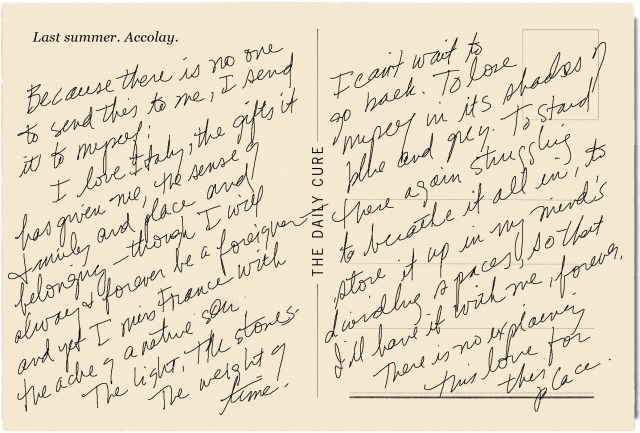 Last summer. Accolay.
Because there is no one
to send this to me, I send
it to myself.
I love Italy, the gifts it
has given me, the sense of
family and place and
belonging – though I will
always & forever be a foreigner –
and yet I miss France with
the ache of a native son.
The light, the stones.
The weight of
time.
THE DAILY CURE
I can't wait to
go back. To lose
myself in its shades of
blue and grey. To stand
there again struggling
to breathe it all in, to
store it up in my mind's
dwindling spaces, so that
I'll have it with me, forever.
There is no explaining
this love for
this place.